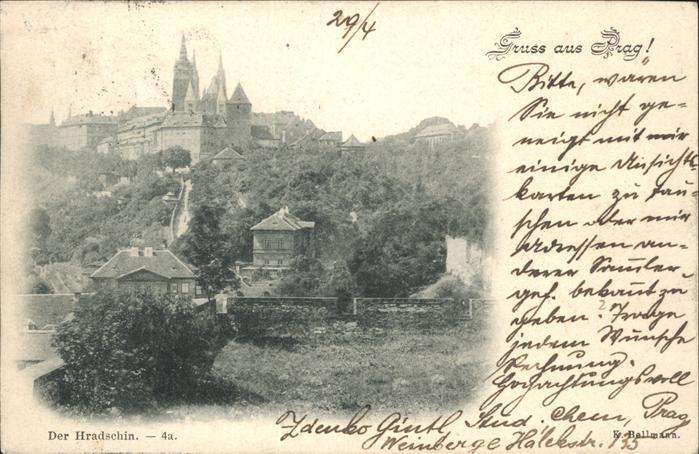 29/4
Gruss aus Prag!
Bitte, wären
Sie nicht ge-
neigt mit mir
einige Ansichts
karten zu tau-
schen oder mir
Adressen an-
derer Sammler-
gef. bekannt zu
geben? Trage
jedem Wünsche
Rechnung.
Hochachtungsvoll
Zdenko Gintl, Stud. chem, Prag
Weinberge Hálekstr. 133
Der Hradschin. — 4a.
K. Bellmann.